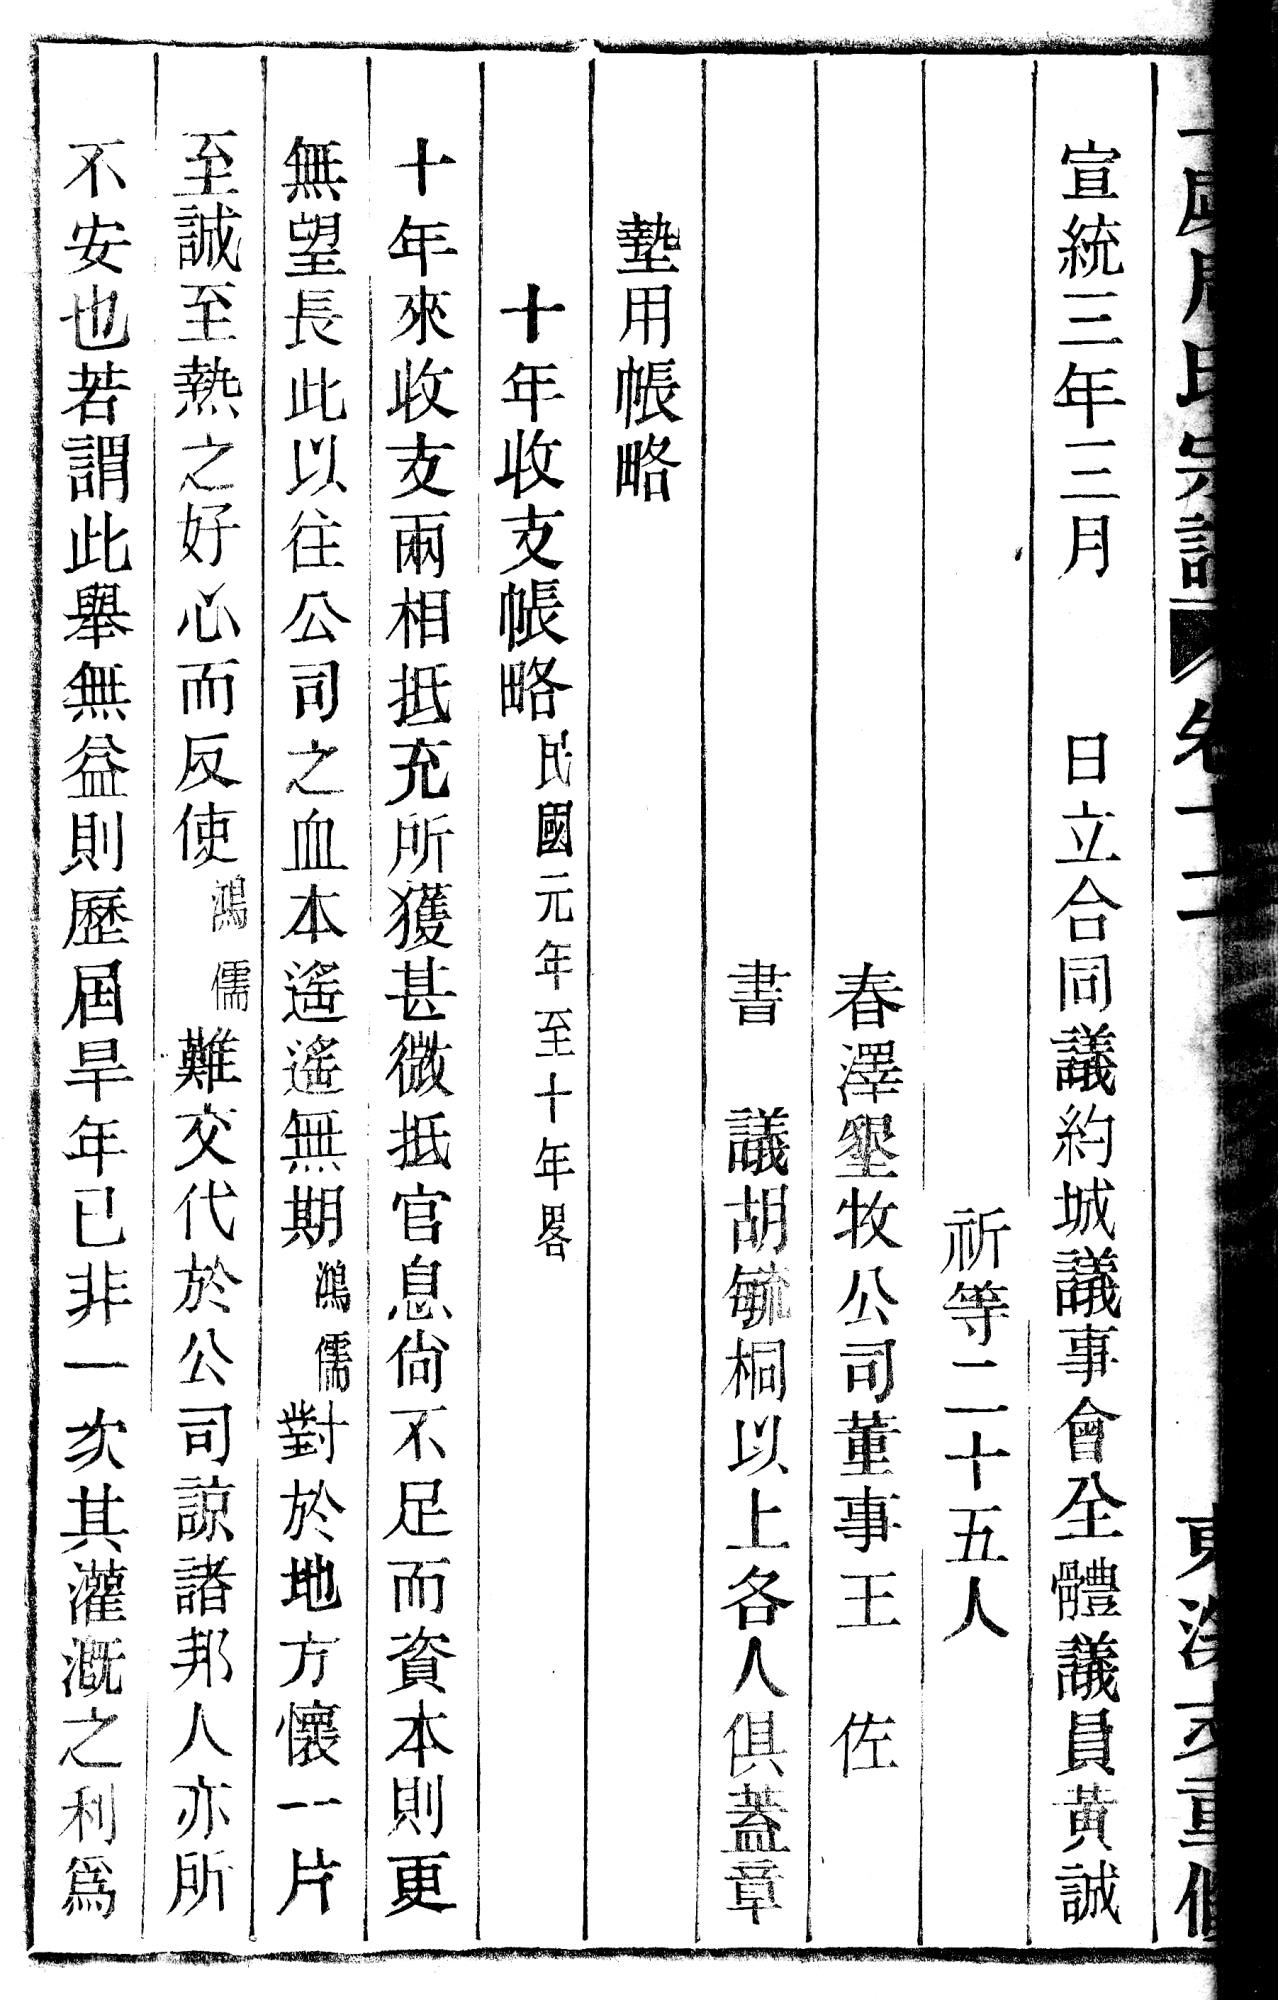 周氏宗譜 卷十二 重修
宣統三年三月 日立合同議約城議事會全體議員黃誠
祈等二十五人
春澤墾牧公司董事王 佐
書 議胡毓桐以上各人俱蓋章
墊用帳略
十年收支帳略民國元年至十年畧
十年來收支兩相抵充所獲甚微抵官息尙不足而資本則更
無望長此以往公司之血本遙遙無期鴻儒對於地方懷一片
至誠至熱之好心而反使鴻儒難交代於公司諒諸邦人亦所
不安也若謂此舉無益則歷屆旱年已非一次其灌漑之利爲